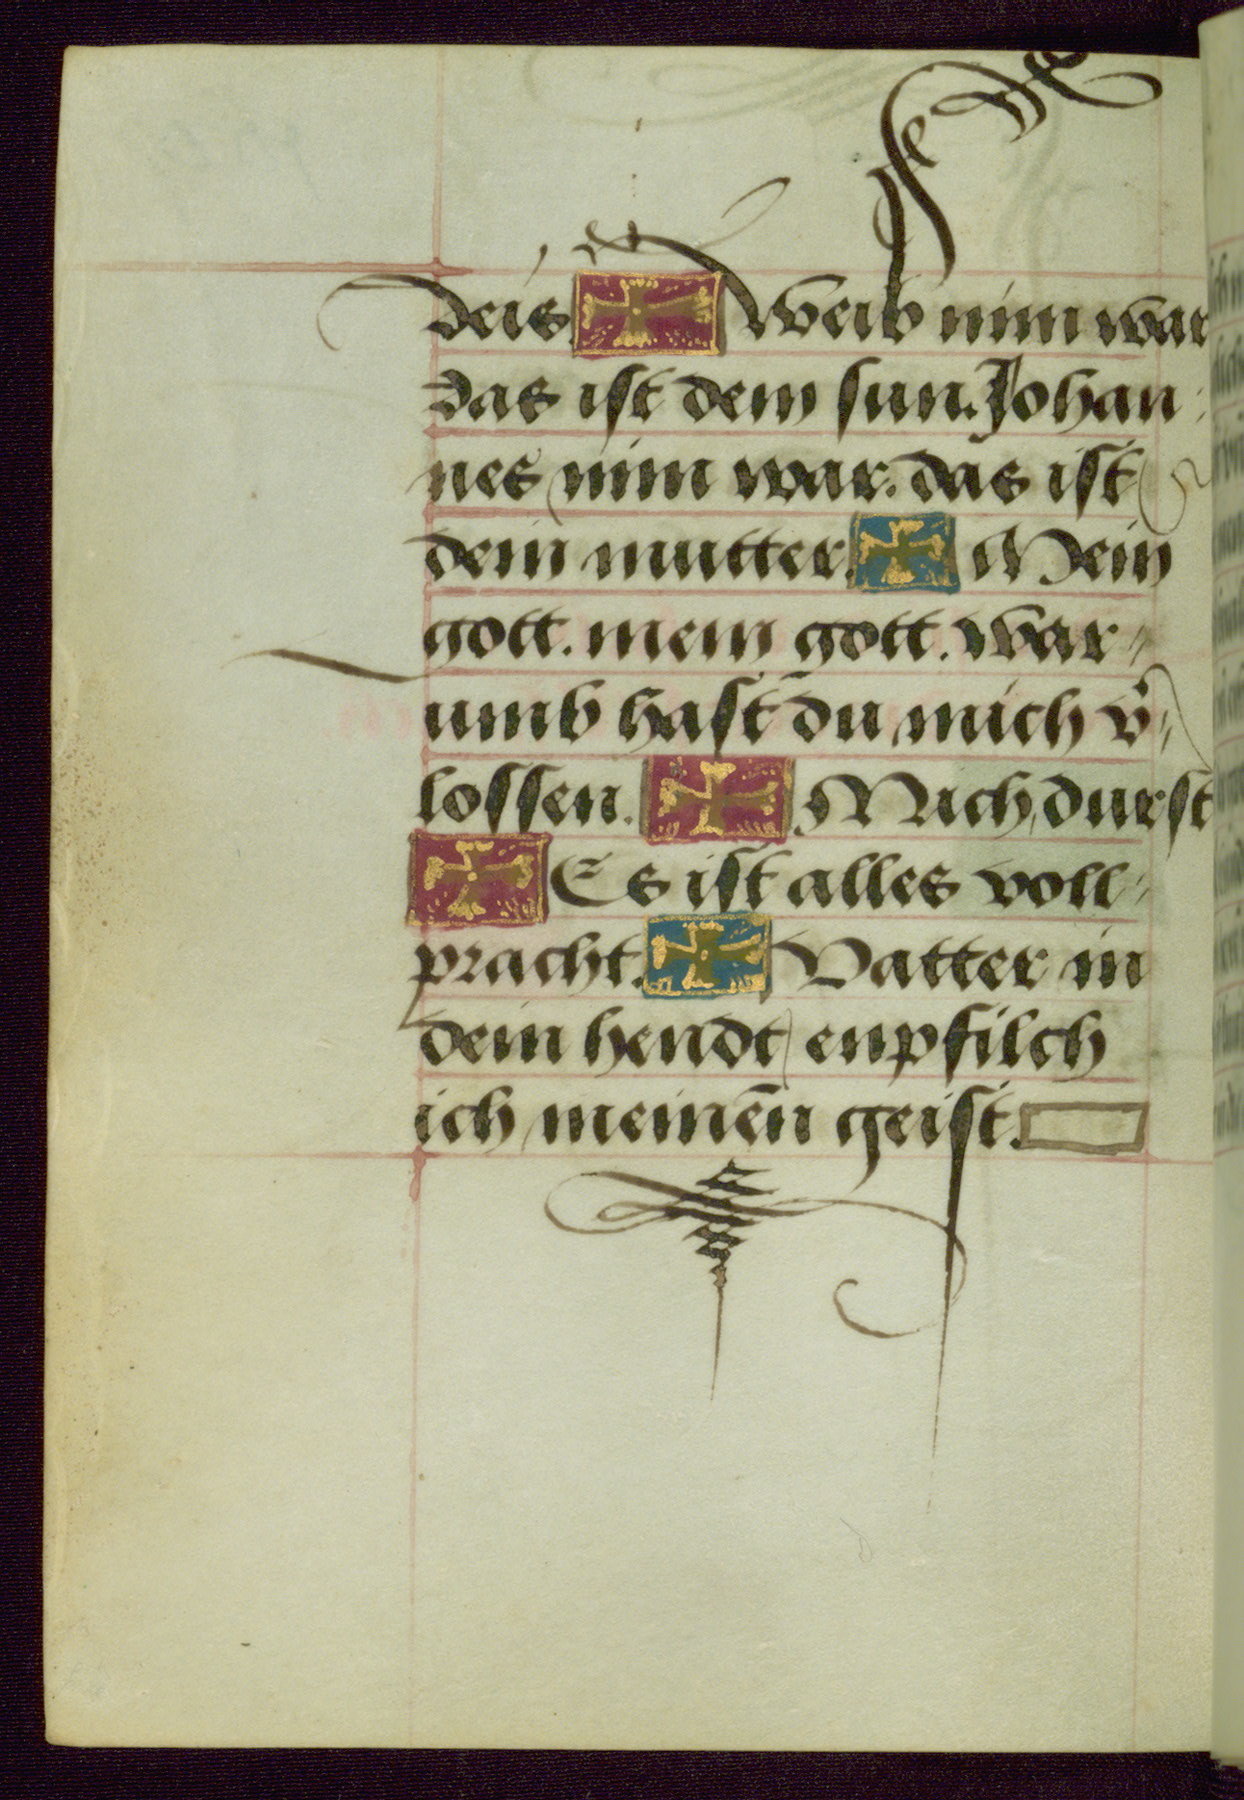 deis. Weib nim war
das ist dein sun. Johan:
nes nim war. das ist
dein mutter. Mein
gott. mein gott. war=
umb hast du mich v̓=
lossen. Mich durst
Es ist alles voll=
pracht. Vatter in
dein hendt enpfilch
ich meinen̄ geist.